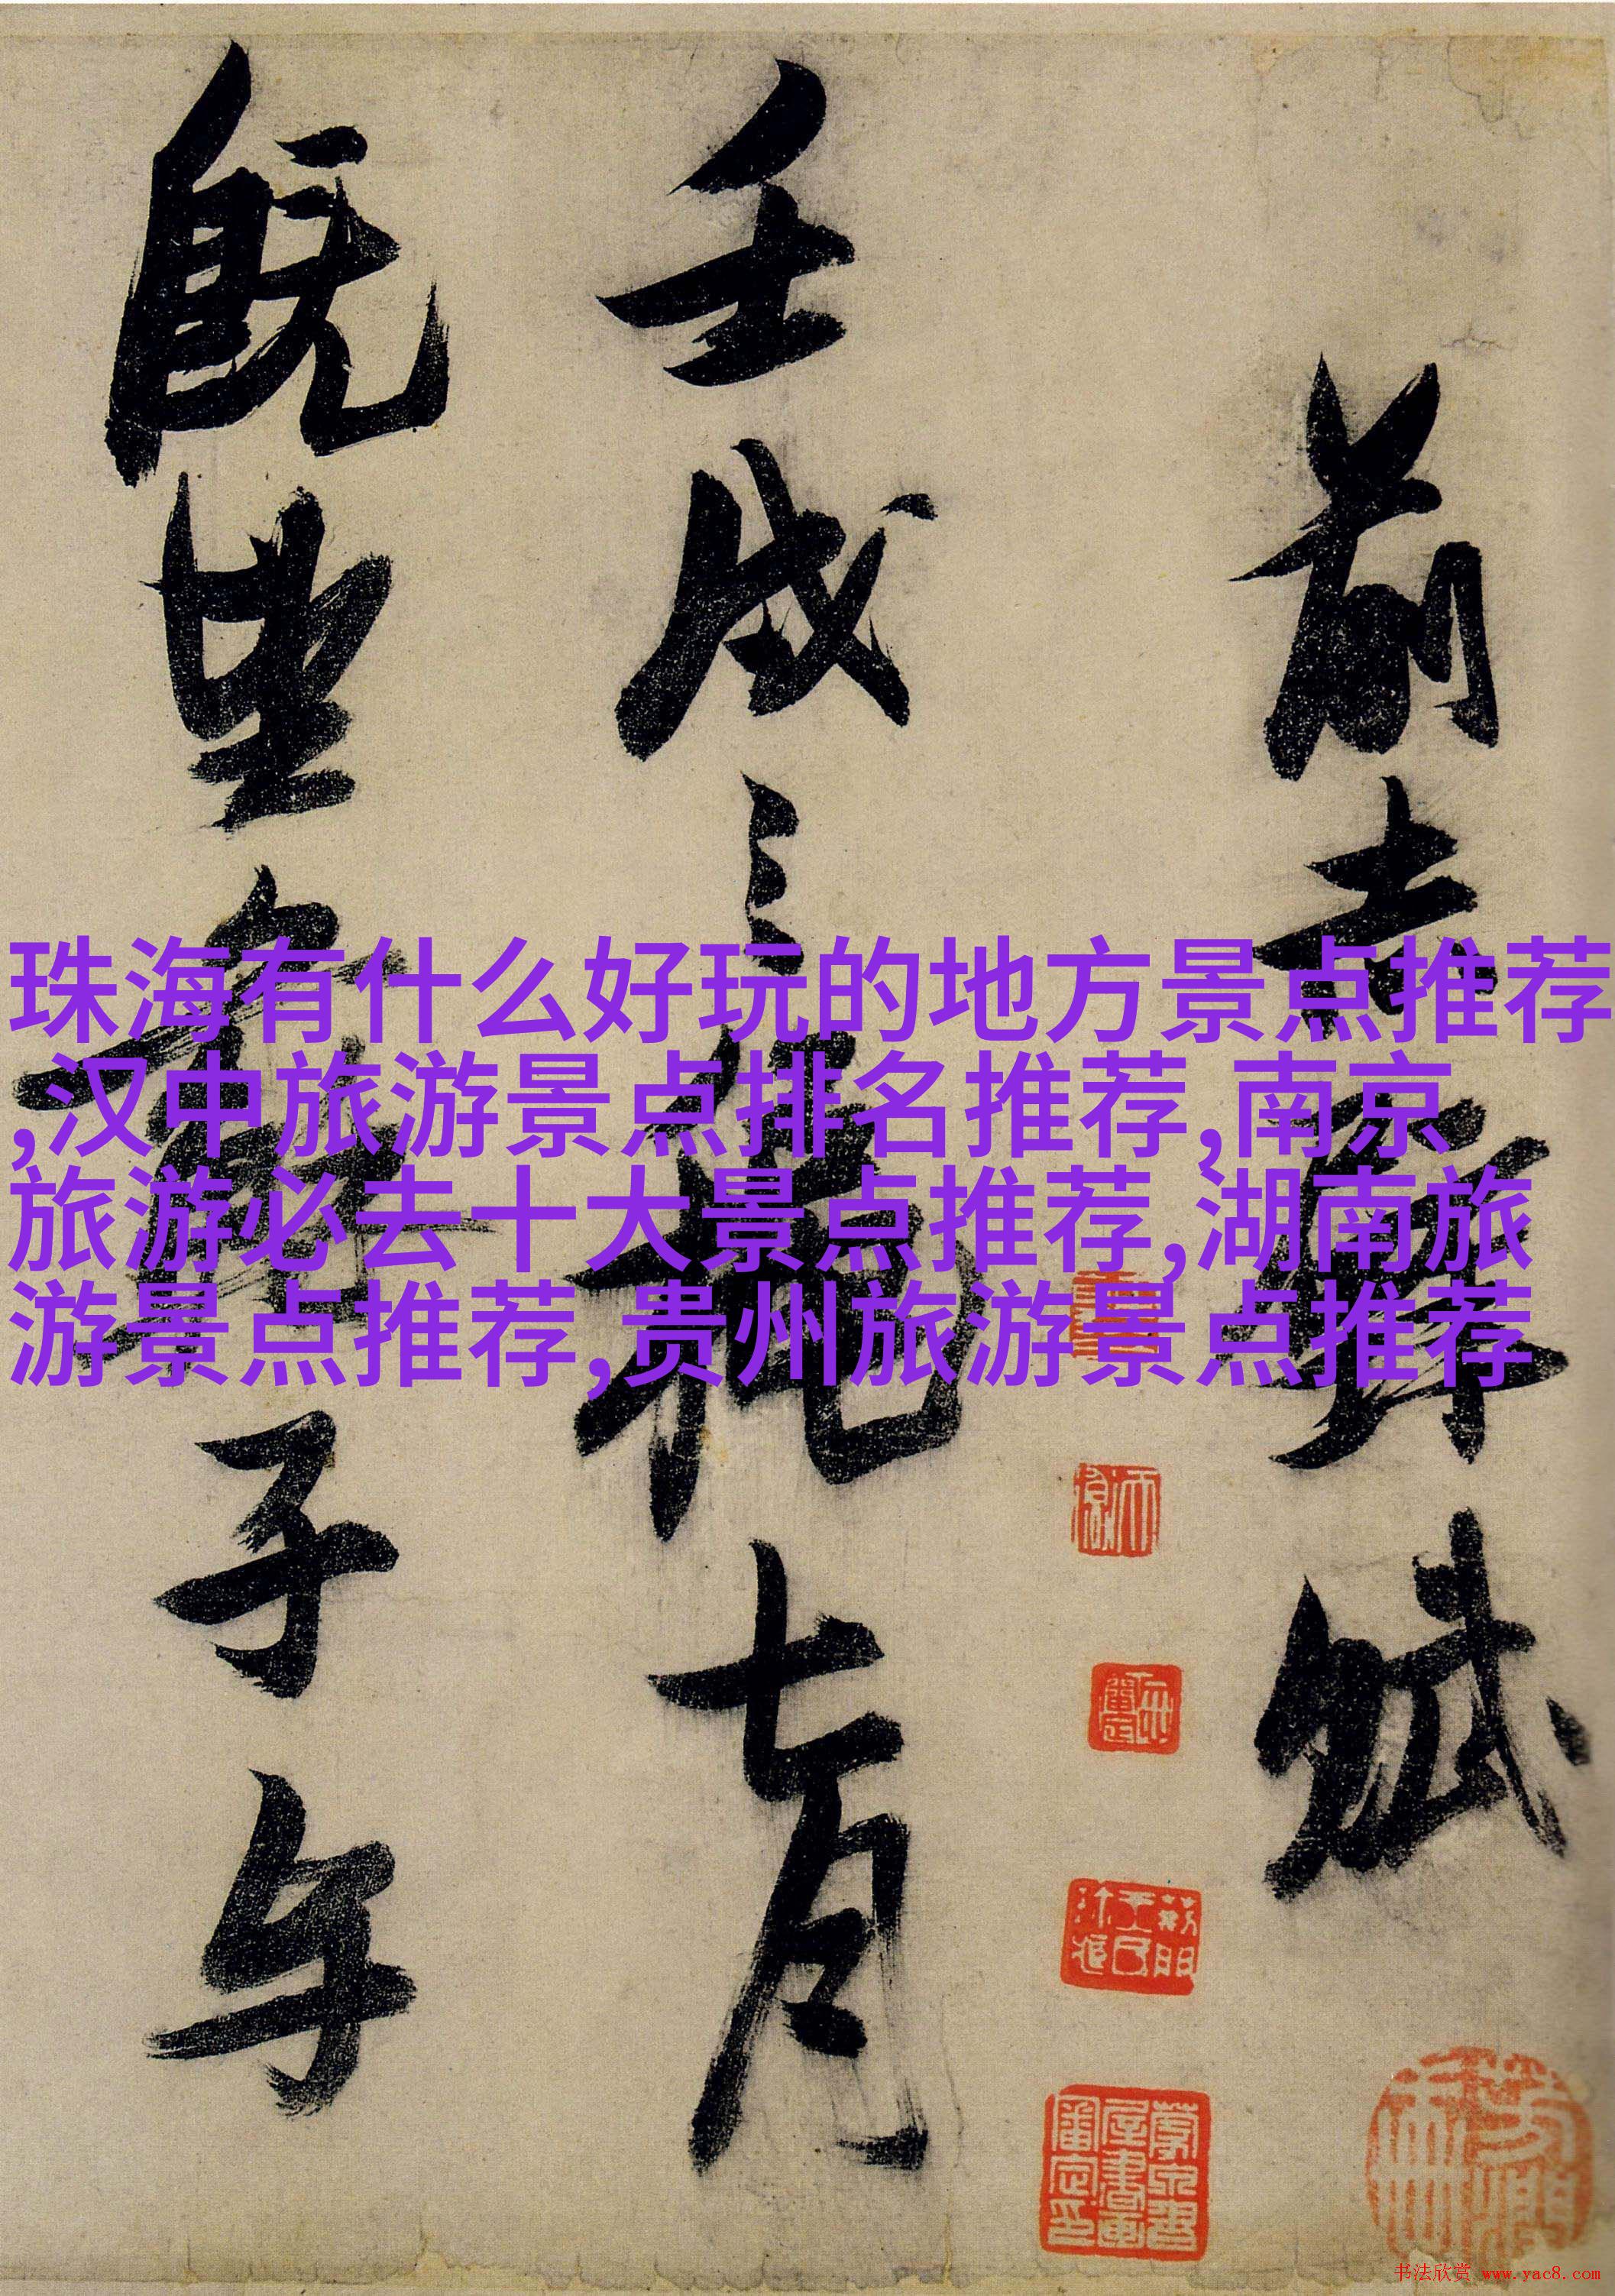 前赤壁賦
壬戌之秋七月
既望蘇子与
珠海有什么好玩的地方景点推荐
,汉中旅游景点排名推荐,南京
旅游必去十大景点推荐,湖南旅
游景点推荐,贵州旅游景点推荐
蒙泉書
屋書畫
審定印
书法欣赏 www.yac8.com